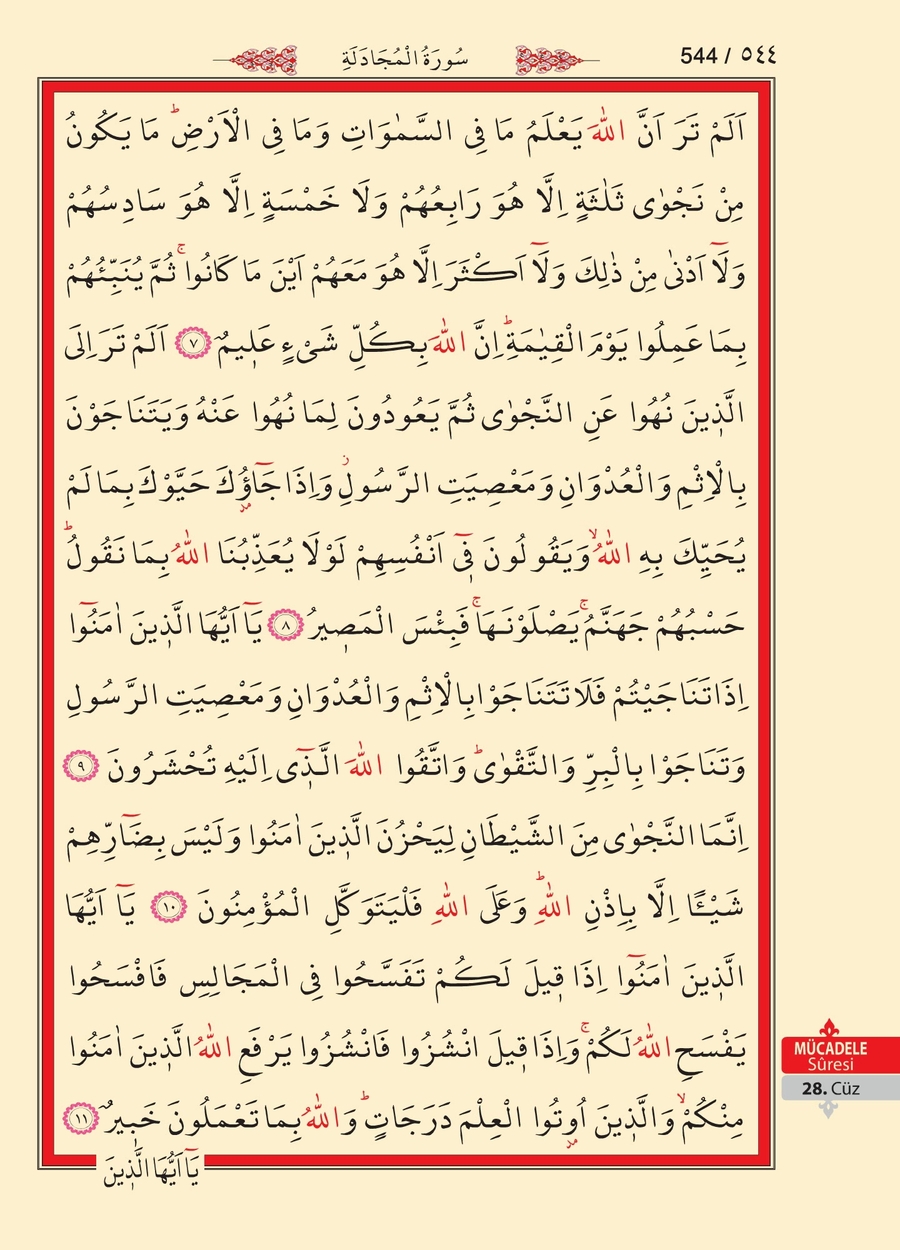 سُورَةُ الْمُجَادَلَةِ
544 / ٥٤٤
اَلَمْ تَرَ اَنَّ اللّٰهَ يَعْلَمُ مَا فِى السَّمٰوَاتِ وَمَا فِى الْاَرْضِۜ مَا يَكُونُ
مِنْ نَجْوٰى ثَلٰثَةٍ اِلَّا هُوَ رَابِعُهُمْ وَلَا خَمْسَةٍ اِلَّا هُوَ سَادِسُهُمْ
وَلَٓا اَدْنٰى مِنْ ذٰلِكَ وَلَٓا اَكْثَرَ اِلَّا هُوَ مَعَهُمْ اَيْنَ مَا كَانُواۚ ثُمَّ يُنَبِّئُهُمْ
بِمَا عَمِلُوا يَوْمَ الْقِيٰمَةِۜ اِنَّ اللّٰهَ بِكُلِّ شَىْءٍ عَلٖيمٌ ﴿٧﴾ اَلَمْ تَرَ اِلَى
الَّذٖينَ نُهُوا عَنِ النَّجْوٰى ثُمَّ يَعُودُونَ لِمَا نُهُوا عَنْهُ وَيَتَنَاجَوْنَ
بِالْاِثْمِ وَالْعُدْوَانِ وَمَعْصِيَتِ الرَّسُولِؗ وَاِذَا جَٓاؤُ۫كَ حَيَّوْكَ بِمَا لَمْ
يُحَيِّكَ بِهِ اللّٰهُۙ وَيَقُولُونَ فٖٓى اَنْفُسِهِمْ لَوْلَا يُعَذِّبُنَا اللّٰهُ بِمَا نَقُولُۜ
حَسْبُهُمْ جَهَنَّمُۚ يَصْلَوْنَهَاۚ فَبِئْسَ الْمَصٖيرُ ﴿٨﴾ يَٓا اَيُّهَا الَّذٖينَ اٰمَنُٓوا
اِذَا تَنَاجَيْتُمْ فَلَا تَتَنَاجَوْا بِالْاِثْمِ وَالْعُدْوَانِ وَمَعْصِيَتِ الرَّسُولِ
وَتَنَاجَوْا بِالْبِرِّ وَالتَّقْوٰىۜ وَاتَّقُوا اللّٰهَ الَّذٖٓى اِلَيْهِ تُحْشَرُونَ ﴿٩﴾
اِنَّمَا النَّجْوٰى مِنَ الشَّيْطَانِ لِيَحْزُنَ الَّذٖينَ اٰمَنُوا وَلَيْسَ بِضَٓارِّهِمْ
شَيْـًٔا اِلَّا بِاِذْنِ اللّٰهِۜ وَعَلَى اللّٰهِ فَلْيَتَوَكَّلِ الْمُؤْمِنُونَ ﴿١٠﴾ يَٓا اَيُّهَا
الَّذٖينَ اٰمَنُٓوا اِذَا قٖيلَ لَكُمْ تَفَسَّحُوا فِى الْمَجَالِسِ فَافْسَحُوا
يَفْسَحِ اللّٰهُ لَكُمْۚ وَاِذَا قٖيلَ انْشُزُوا فَانْشُزُوا يَرْفَعِ اللّٰهُ الَّذٖينَ اٰمَنُوا
مِنْكُمْۙ وَالَّذٖينَ اُو۫تُوا الْعِلْمَ دَرَجَاتٍۜ وَاللّٰهُ بِمَا تَعْمَلُونَ خَبٖيرٌ ﴿١١﴾
يَٓا اَيُّهَا الَّذٖينَ
MÜCADELE
Sûresi
28. Cüz